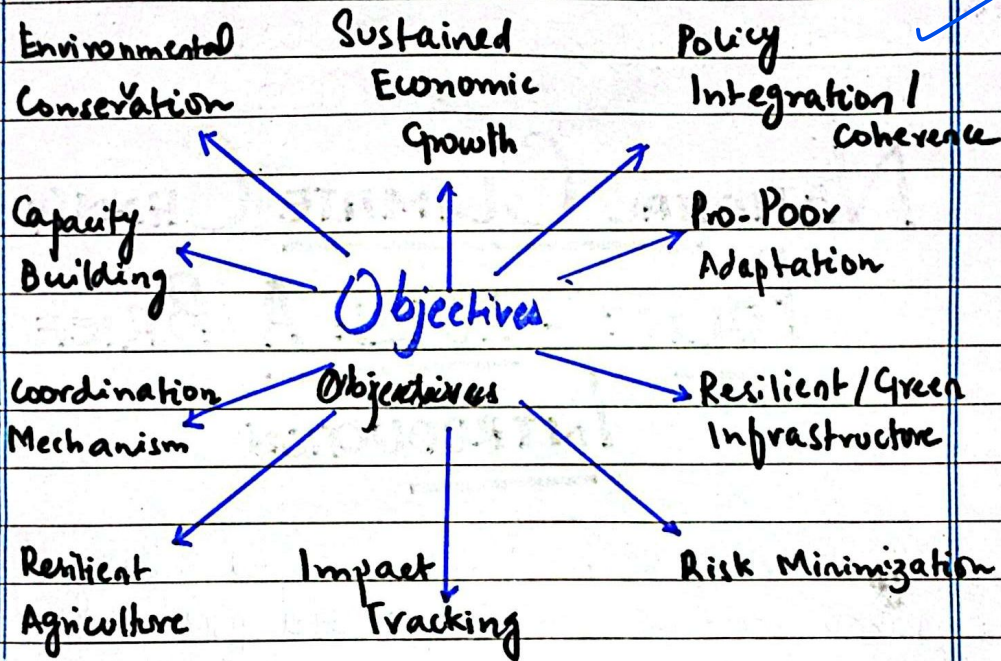 Environmental
Conservation
Sustained
Economic
Growth
Policy
Integration /
Coherence
Capacity
Building
Pro-Poor
Adaptation
Objectives
Objectives
Coordination
Mechanism
Resilient / Green
Infrastructure
Resilient
Agriculture
Impact
Tracking
Risk Minimization